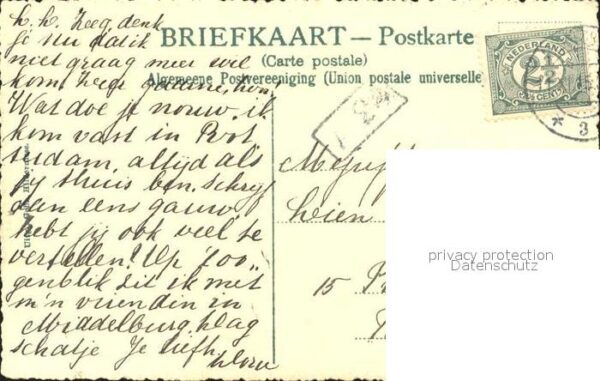 BRIEFKAART — Postkarte
(Carte postale)
Algemeene Postvereeniging (Union postale universelle
NEDERLAND
2½
CENT
3
L. L. Zeg denk
je nu dat ik
niet graag mee wil
kom. Zeer gaarne, hoor
Wat doe je nouw. ik
kom vast in Rot
terdam, altijd als
jij thuis ben. Schrijf
dan eens gauw
hebt jij ook veel te
vertellen! Op 't oo"
genblik zit ik met
m'n vriendin in
Middelburg. Dag
schatje Je liefh.
Mejuff
Wien
15
privacy protection
Datenschutz